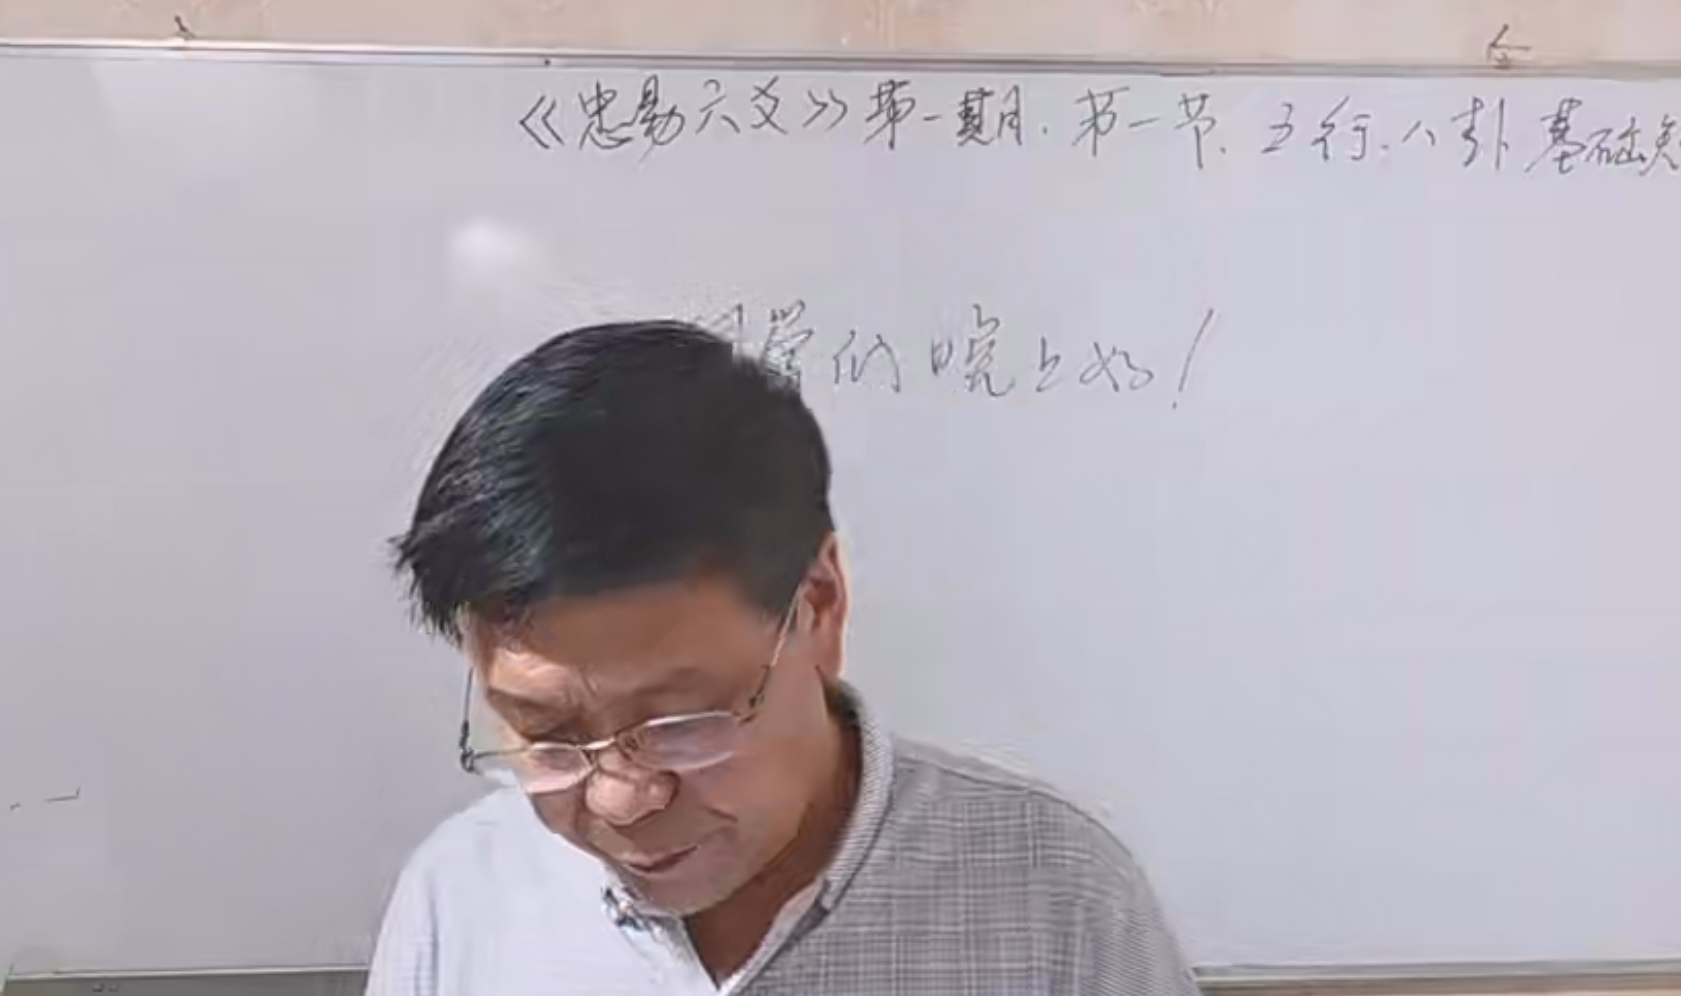 《忠易六爻》第一期.第一节.五行.八卦基础知
同学们晚上好!